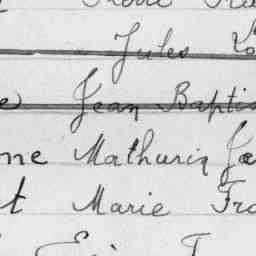 Jules
e Jean Baptis
ne Mathurin Ja
t Marie Fra